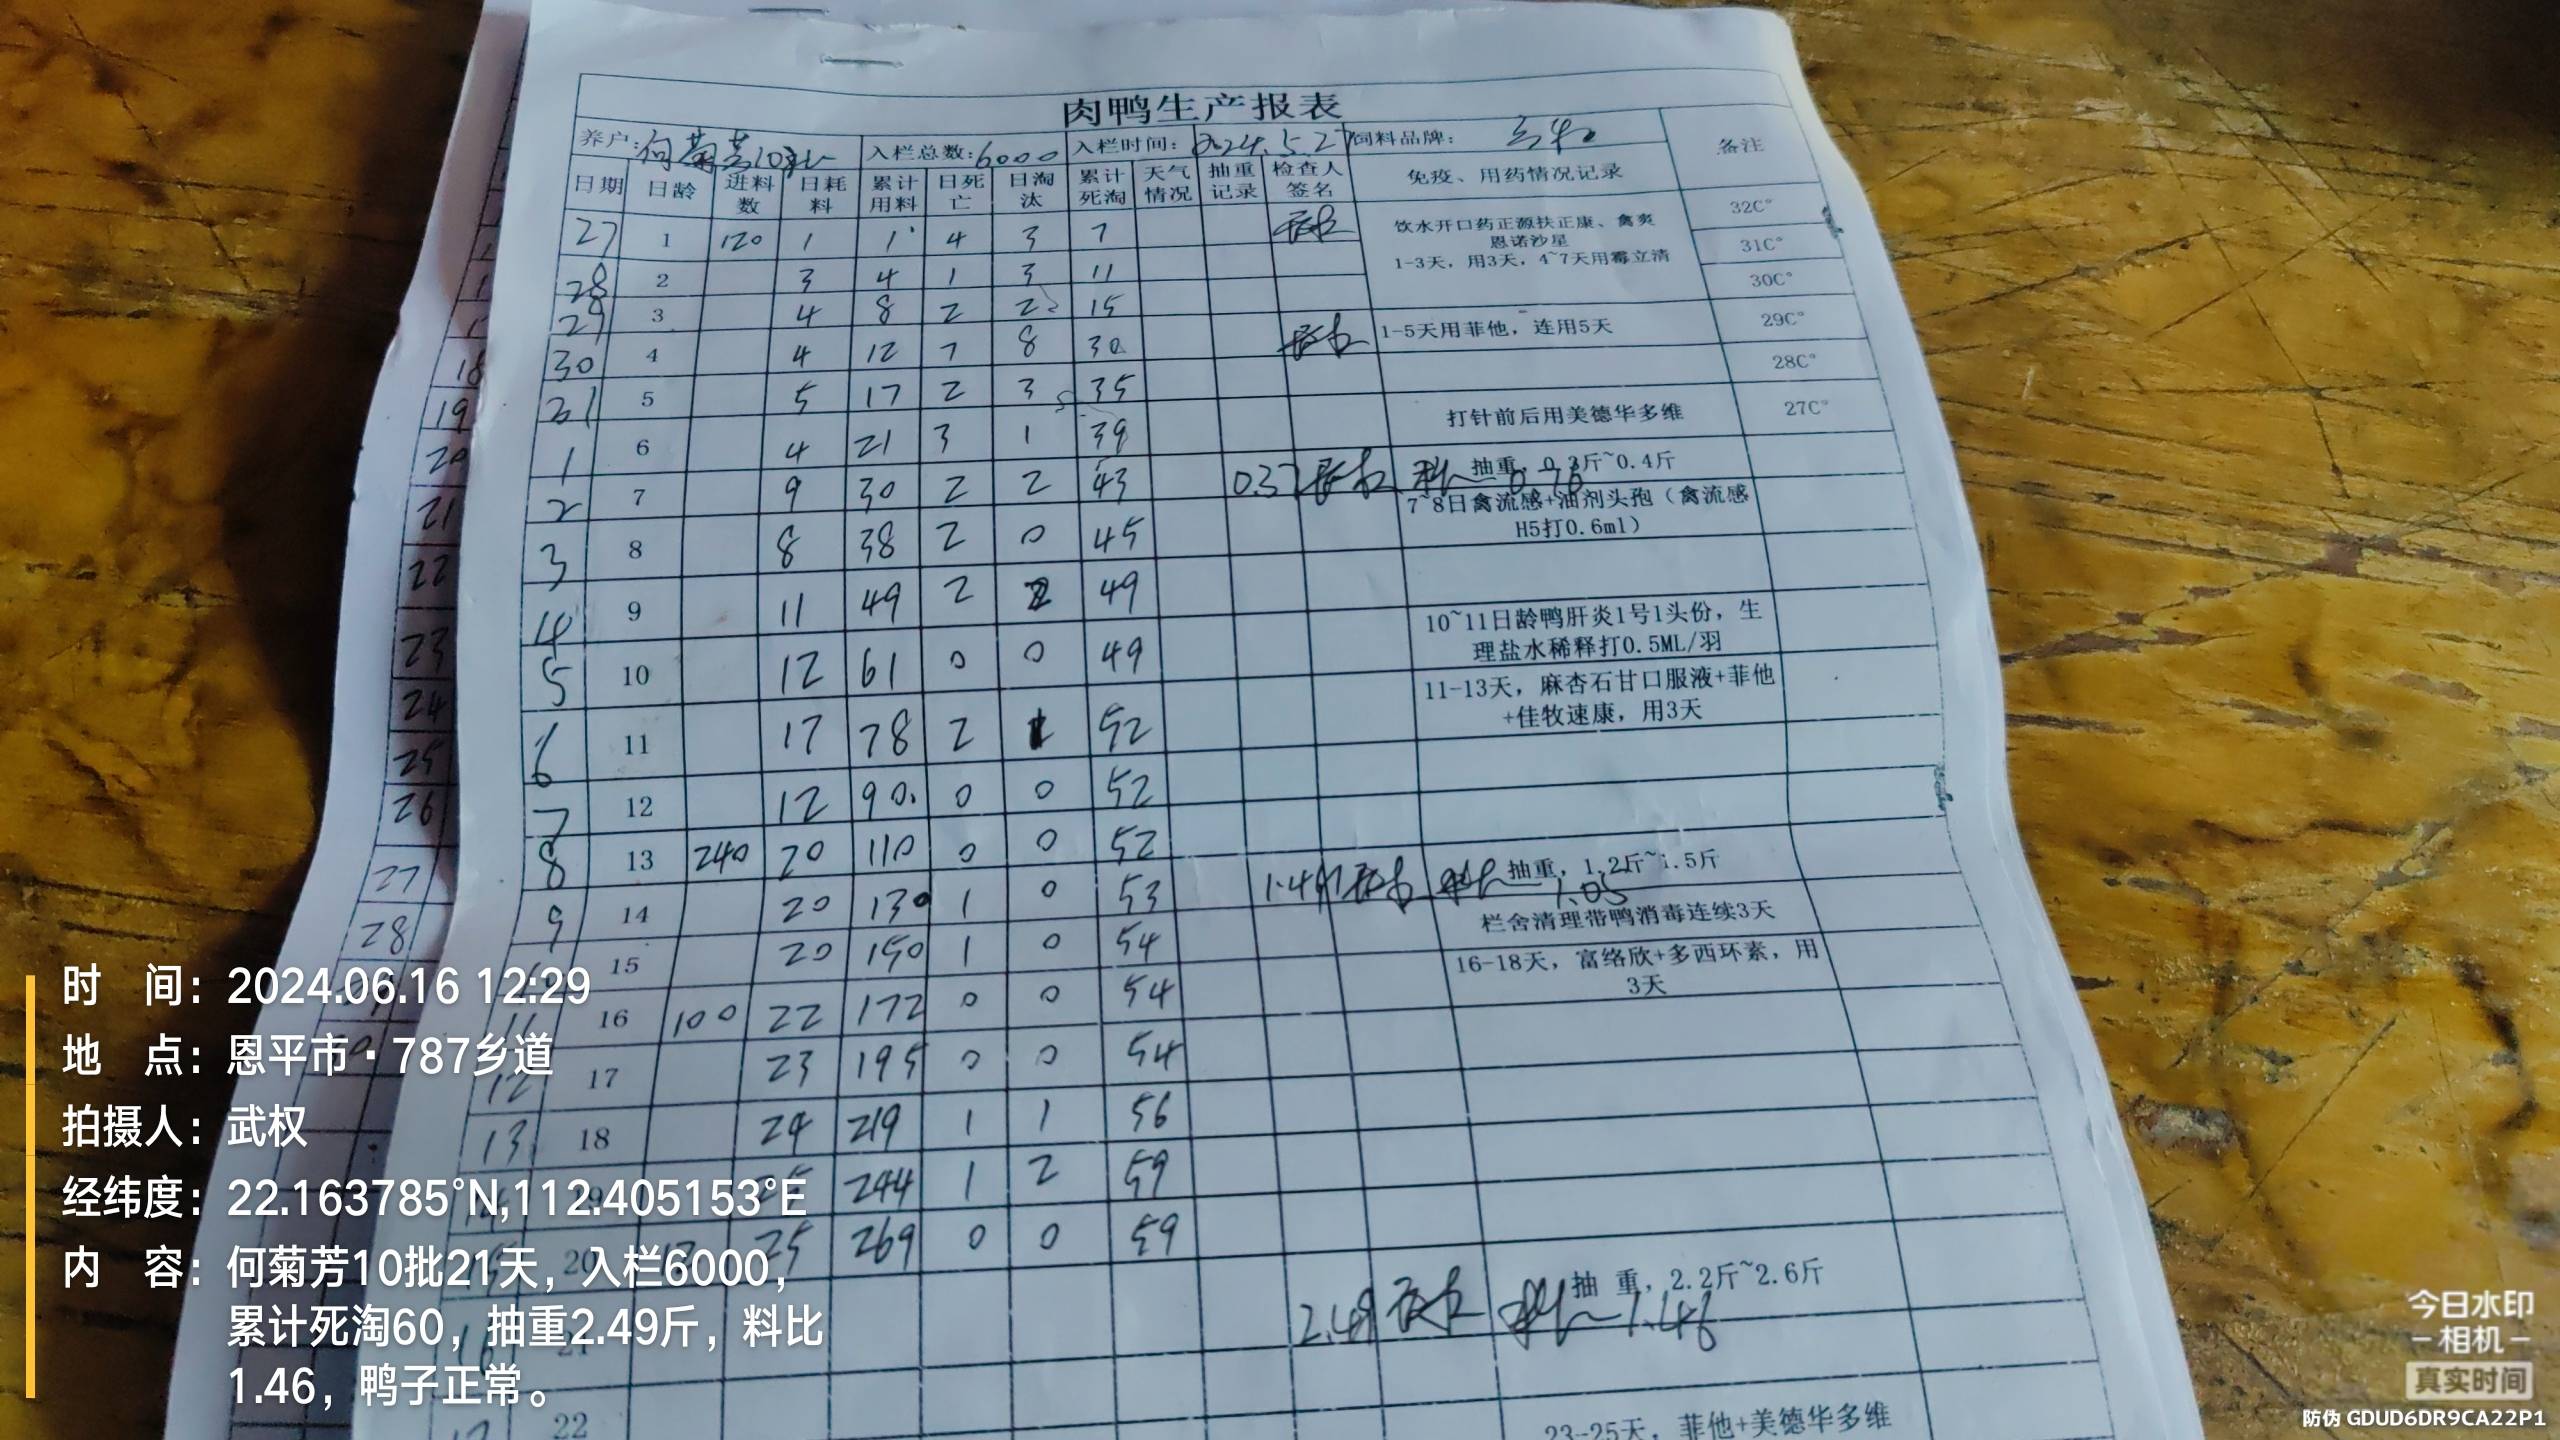 肉鸭生产报表
养户: 何菊芳10批 入栏总数: 6000 入栏时间: 2024.5.27 饲料品牌: 备注
日期 日龄 进料数 日耗料 累计用料 日死亡 日淘汰 累计死淘 天气情况 抽重记录 检查人签名 免疫、用药情况记录
27 1 120 1 1 4 3 7 饮水开口药正源扶正康、禽爽 32C°
恩诺沙星
28 2 3 4 1 3 11 1-3天，用3天，4~7天用霉立清 31C°
29 3 4 8 2 2 15 30C°
30 4 4 12 7 8 30 1-5天用菲他，连用5天 29C°
31 5 5 17 2 3 35 28C°
1 6 4 21 3 1 39 打针前后用美德华多维 27C°
2 7 9 30 2 2 43 0.37 抽重，0.3斤~0.4斤 料比 0.76
3 8 8 38 2 0 45 7~8日禽流感+油剂头孢（禽流感
H5打0.6ml）
4 9 11 49 2 2 49
5 10 12 61 0 0 49 10~11日龄鸭肝炎1号1头份，生
理盐水稀释打0.5ML/羽
6 11 17 78 2 1 52 11-13天，麻杏石甘口服液+菲他
+佳牧速康，用3天
7 12 12 90. 0 0 52
8 13 240 20 110 0 0 52
9 14 20 130 1 0 53 抽重，1.2斤~1.5斤 料比 1.05
15 20 150 1 0 54 栏舍清理带鸭消毒连续3天
11 16 100 22 172 0 0 54 16-18天，富络欣+多西环素，用
3天
12 17 23 195 0 0 54
13 18 24 219 1 1 56
19 25 244 1 2 59
20 25 269 0 0 59
16 21 2.49 抽 重，2.2斤~2.6斤 料比 1.46
22
23-25天，菲他+美德华多维
18
19
20
21
22
23
24
25
26
27
28
时 间：2024.06.16 12:29
地 点：恩平市·787乡道
拍摄人：武权
经纬度：22.163785°N,112.405153°E
内 容：何菊芳10批21天，入栏6000，
累计死淘60，抽重2.49斤，料比
1.46，鸭子正常。
今日水印
相机
真实时间
防伪 GDUD6DR9CA22P1